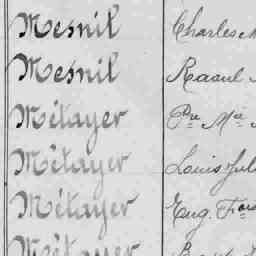 Mesnil Charles
Mesnil Raoul
Métayer Pre Ma
Métayer Louis Jul
Métayer Eug. Fois
Métayer